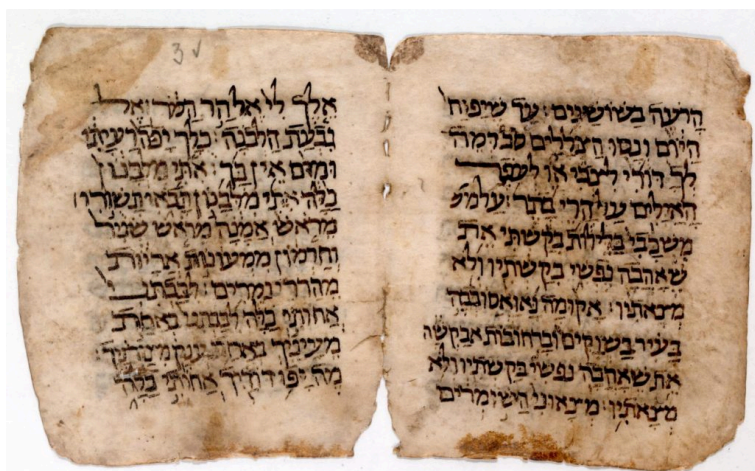 הרעה בשושנים׃ עד שיפוח
היום ונסו הצללים סב דמה
לך דודי לצבי או לעפר
האילים על הרי בתר׃ על מש
משכבי בלילות בקשתי את
שאהבה נפשי בקשתיו ולא
מצאתיו׃ אקומה נא ואסובבה
בעיר בשוקים וברחובות אבקשה
את שאהבה נפשי בקשתיו ולא
מצאתיו׃ מצאוני השומרים
3v
אלך לי אל הר המר׃ אל
גבעת הלבנה׃ כלך יפה רעיתי
ומום אין בך׃ אתי מלבנון
כלה אתי מלבנון תבואי תשורי
מראש אמנה מראש שניר
וחרמון ממעונות אריות
מהררי נמרים׃ לבבתנ
אחותי כלה לבבתני באחת
מעיניך באחד ענק מצורניך׃
מה יפו דודיך אחותי כלה